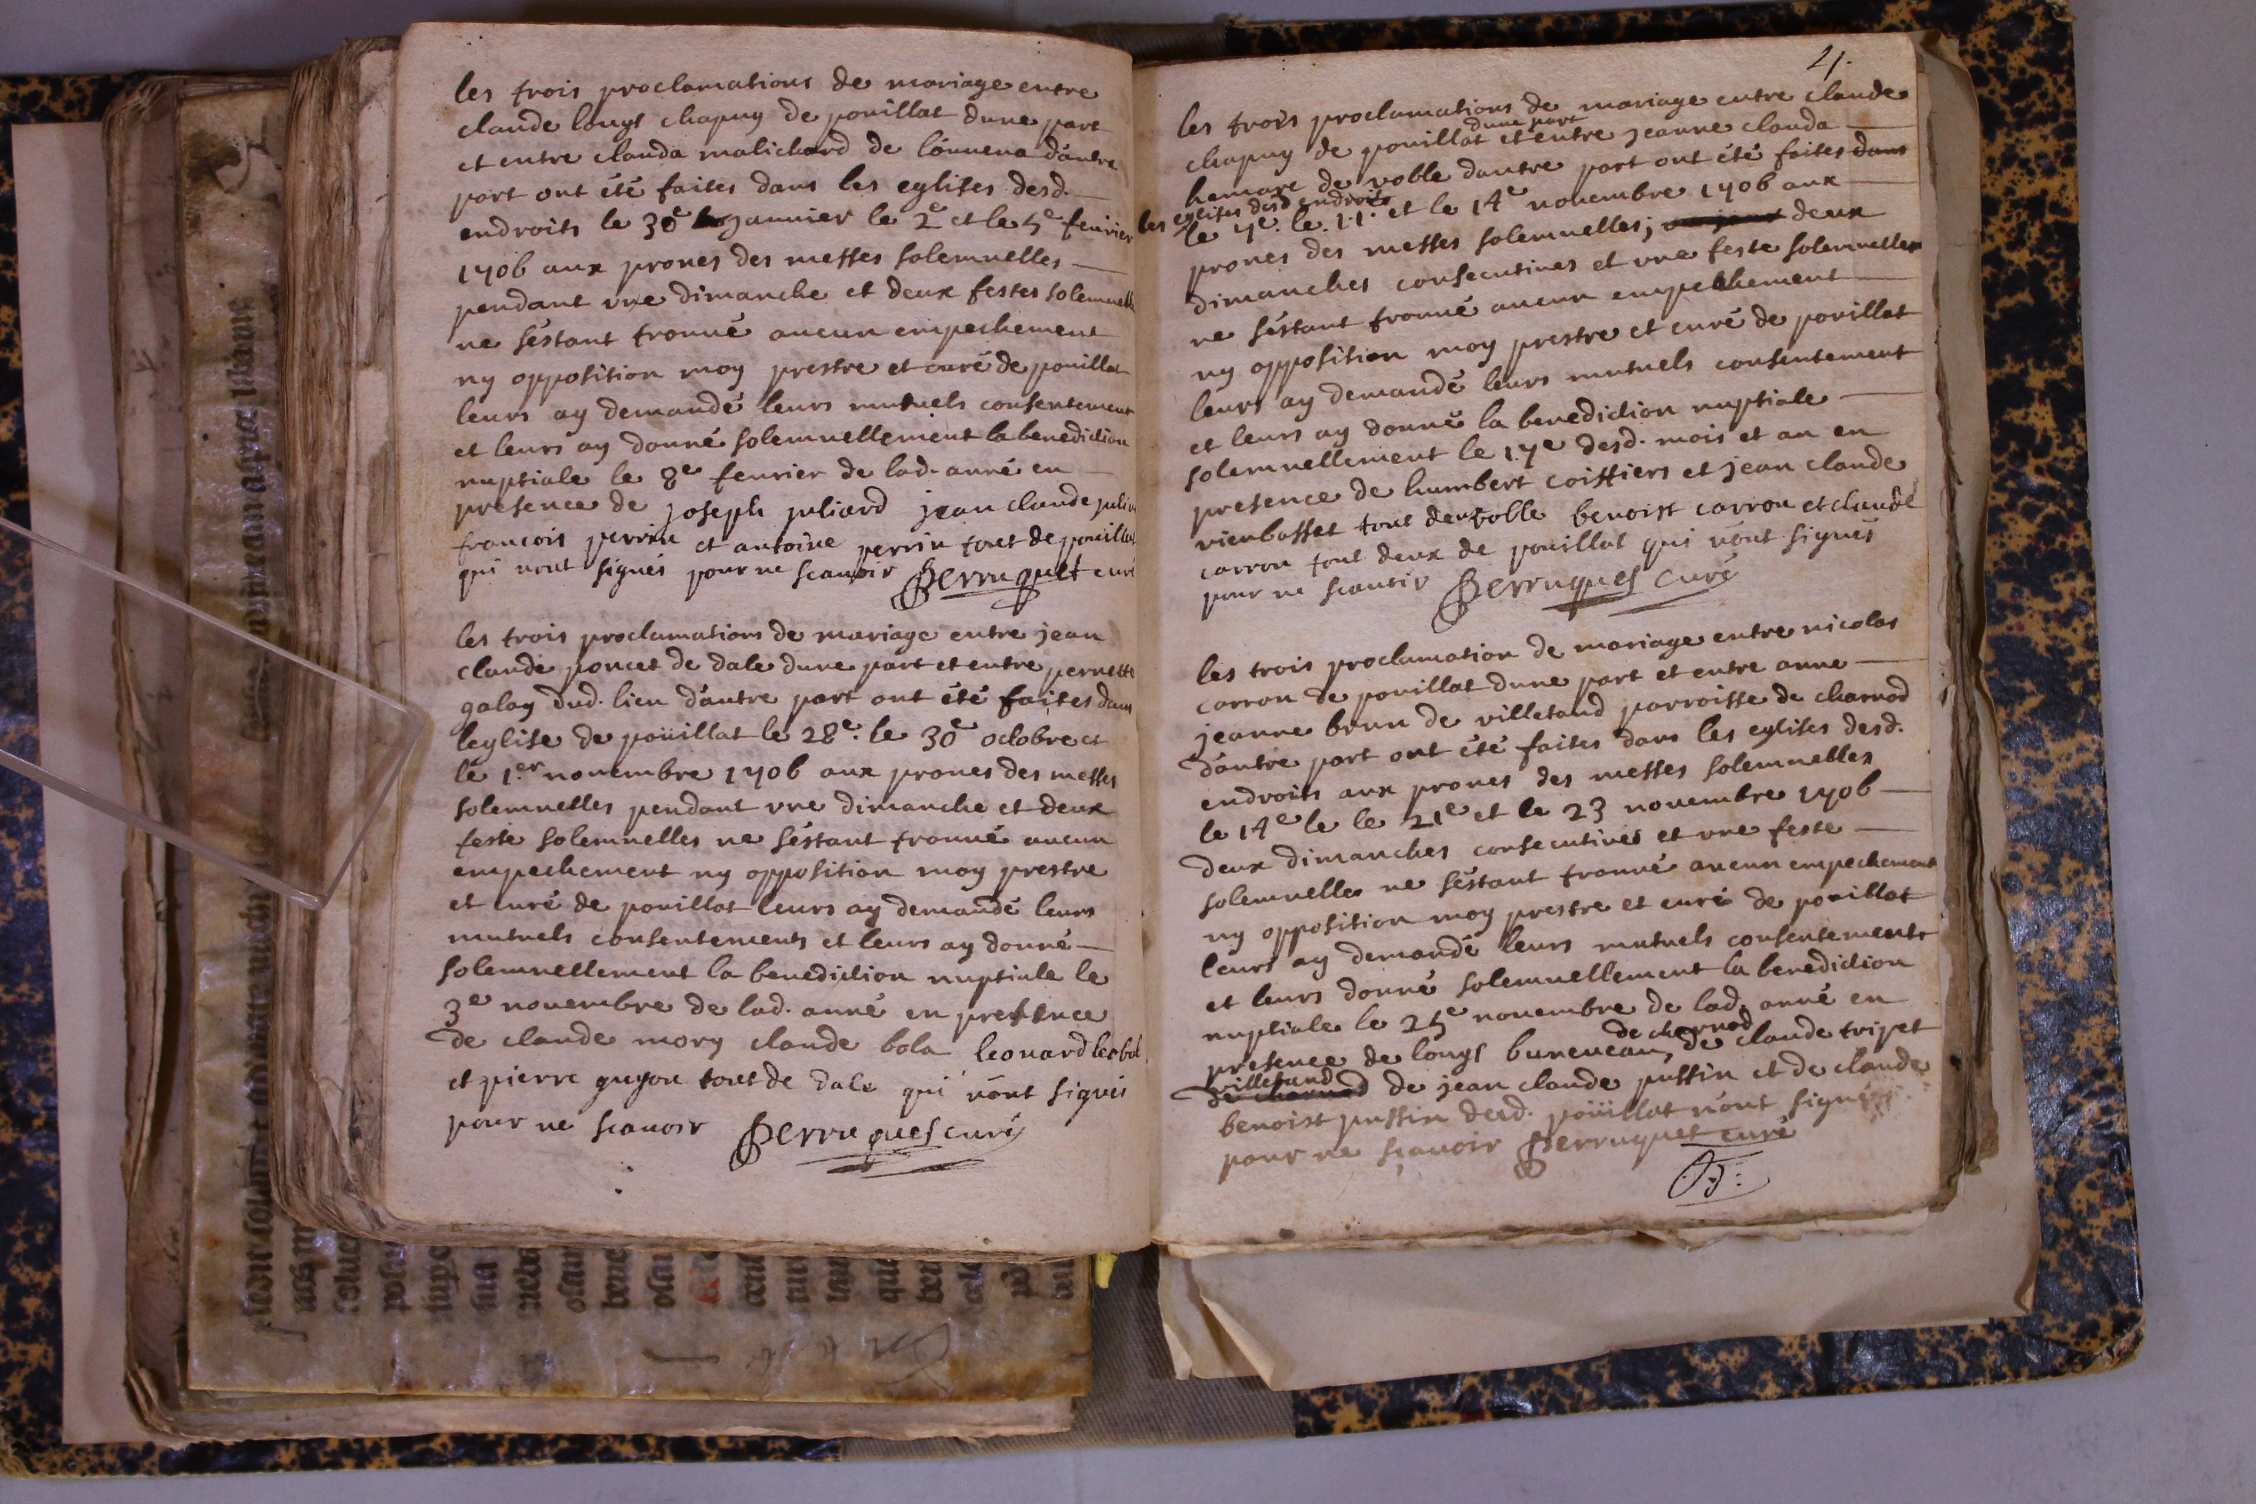 les trois proclamations de mariage entre
claude louys chapuy de pouillat dune part
et entre clauda malichard de louuena dautre
part ont été faites dans les eglises desd.
endroits le 30e januier le 2e et le 5e feurier
1706 aux prones des messes solemnelles
pendant vne dimanche et deux festes solemnelle
ne séstant trouué aucun empechement
ny opposition moy prestre et curé de pouillat
leurs ay demandé leurs mutuels consentement
et leurs ay donné solemnellement la benediction
nuptiale le 8e feurier de lad. anné en
presence de joseph juliard jean claude
francois perrin et antoine perrin tout de pouillat
qui nont signés pour ne scauoir Perruquet curé
les trois proclamations de mariage entre jean
claude poncet de dale dune part et entre pernette
galay dud. lieu dautre part ont été faites dans
leglise de poüillat le 28e. le 30e octobre et
le 1.er nouembre 1706 aux prones des messes
solemnelles pendant vne dimanche et deux
feste solemnelles ne séstant trouué aucun
empechement ny opposition moy prestre
et curé de pouillat leurs ay demandé leurs
mutuels consentements et leurs ay donné
solemnellement la benediction nuptiale le
3e nouembre de lad. anné en presence
de claude mory claude bola leonard
et pierre guyon tout de dale qui nont signés
pour ne scauoir Perruquet curé
21.
les trois proclamations de mariage entre claude
chapuy de pouillat dune part et entre jeanne clauda
de voble dautre part ont été faites dans
les eglises desd endroits
le 7e. le. 11e. et le 14e nouembre 1706 aux
prones des messes solemnelles; deux
dimanches consecutiues et vne feste solemnelle
ne séstant trouué aucun empechement
ny opposition moy prestre et curé de pouillat
leurs ay demandé leurs mutuels consentement
et leurs ay donné la benediction nuptiale
solemnellement le 17e desd. mois et an en
presence de humbert coiffiers et jean claude
vienbasset tout de voble benoist carron et claude
carron tout deux de pouillat qui nont signés
pour ne scauoir Perruquet curé
les trois proclamation de mariage entre nicolas
carron de pouillat dune part et entre anne
jeanne brun de villetand parroisse de charnod
dautre part ont été faites dans les eglises desd.
endroits aux prones des messes solemnelles
le 14e le le 21e et le 23 nouembre 1706
deux dimanches consecutiues et vne feste
solemnelle ne séstant trouué aucun empechement
ny opposition moy prestre et curé de pouillat
leurs ay demandé leurs mutuels consentements
et leurs donné solemnellement la benediction
nuptiale le 25e nouembre de lad. anné en
presence de louys buneueau, de charnod de claude tripet
villetand de charnod de jean claude pussin et de claude
benoist pussin desd. poüillat nont signés
pour ne sçauoir Perruquet curé